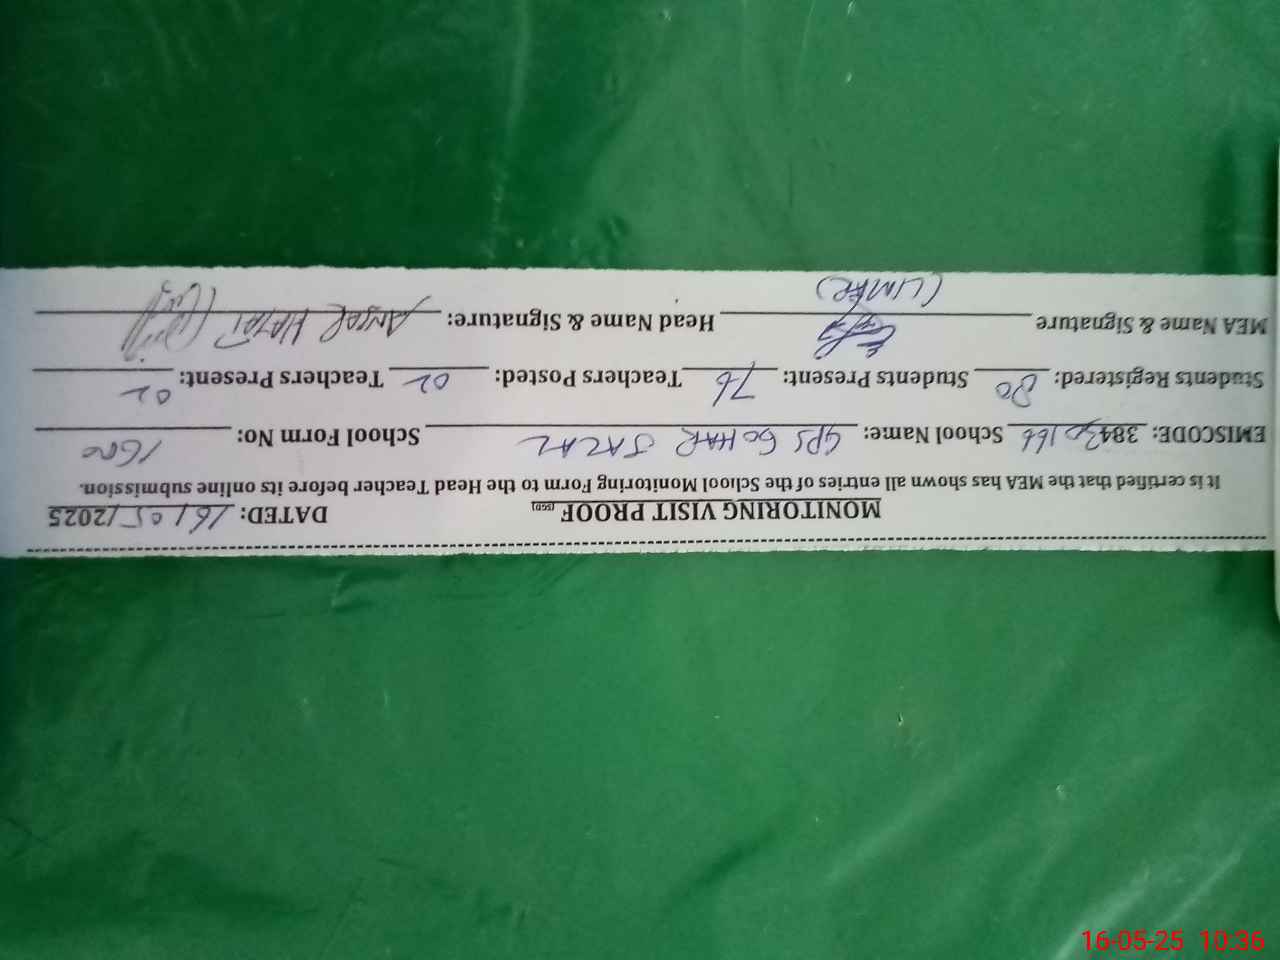 MONITORING VISIT PROOF (SGD) DATED: 16/05/2025
It is certified that the MEA has shown all entries of the School Monitoring Form to the Head Teacher before its online submission.
EMISCODE: 38430166 School Name: GPS GOHAR JALAL School Form No: 1600
Students Registered: 80 Students Present: 76 Teachers Posted: 02 Teachers Present: 02
MEA Name & Signature Head Name & Signature: ANSAR HAYAT
(UMAR)
16-05-25 10:36